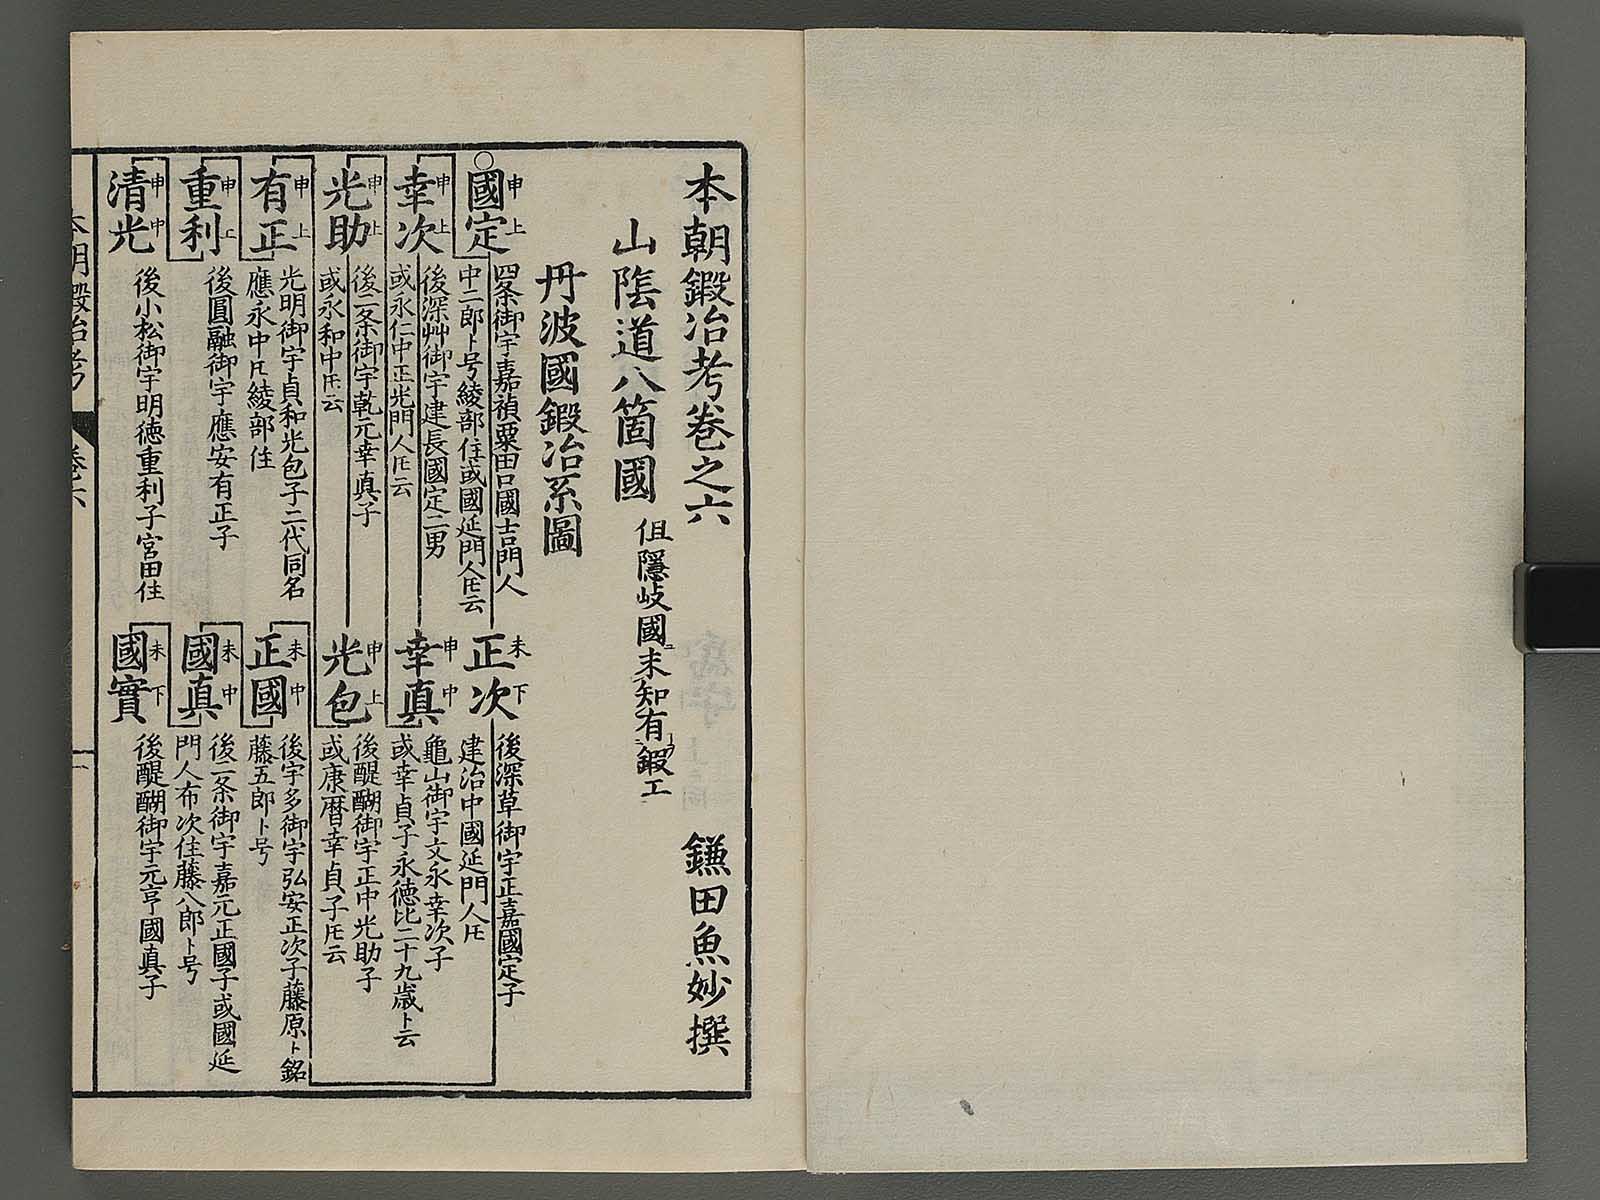 本朝鍛冶考巻之六
鎌田魚妙撰
山陰道八箇國
但隱岐國ニ未知有鍜工
丹波國鍛冶系圖
○國定
申上
四条御宇嘉禎粟田口國吉門人
中二郎ト号綾部住或國延門人𪜈云
正次
未下
後深草御宇正嘉國定子
建治中國延門人𪜈
幸次
申上
後深艸御宇建長國定二男
或永仁中正光門人𪜈云
幸真
申中
龜山御宇文永幸次子
或幸貞子永徳比二十九歳ト云
光助
申上
後二条御宇乾元幸真子
或永和中𪜈云
光包
申上
後醍醐御宇正中光助子
或康暦幸貞子𪜈云
有正
申上
光明御宇貞和光包子二代同名
應永中𪜈綾部住
正國
未中
後宇多御宇弘安正次子藤原ト銘
藤五郎ト号
重利
申上
後圓融御宇應安有正子
國真
未中
後二条御宇嘉元正國子或國延
門人布次住藤八郎ト号
清光
申中
後小松御宇明徳重利子宮田住
國實
未下
後醍醐御宇元亨國真子
本朝鍛冶考
巻六
一